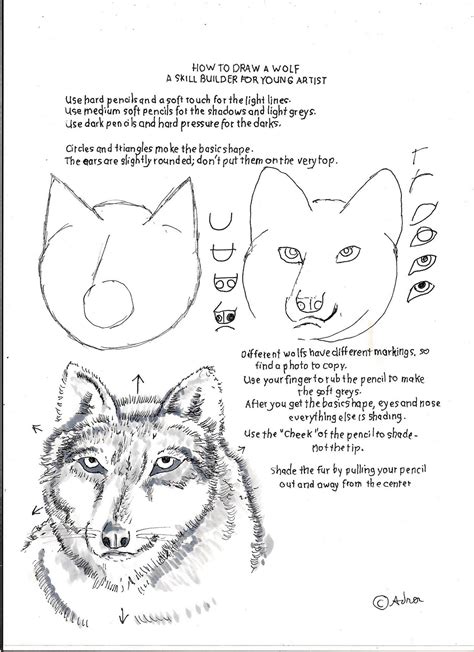 HOW TO DRAW A WOLF
A SKILL BUILDER FOR YOUNG ARTIST
Use hard pencils and a soft touch for the light lines.
Use medium soft pencils fot the shadows and light greys.
Use dark pencils and hard pressure for the darks.
Circles and triangles make the basic shape.
The ears are slightly rounded; don't put them on the very top.
Different wolfs have different markings, so
find a photo to copy.
Use your finger to rub the pencil to make
the soft greys.
After you get the basic shape, eyes and nose
everything else is shading.
Use the "Cheek" of the pencil to shade-
Not the tip.
Shade the fur by pulling your pencil
out and away from the center
©